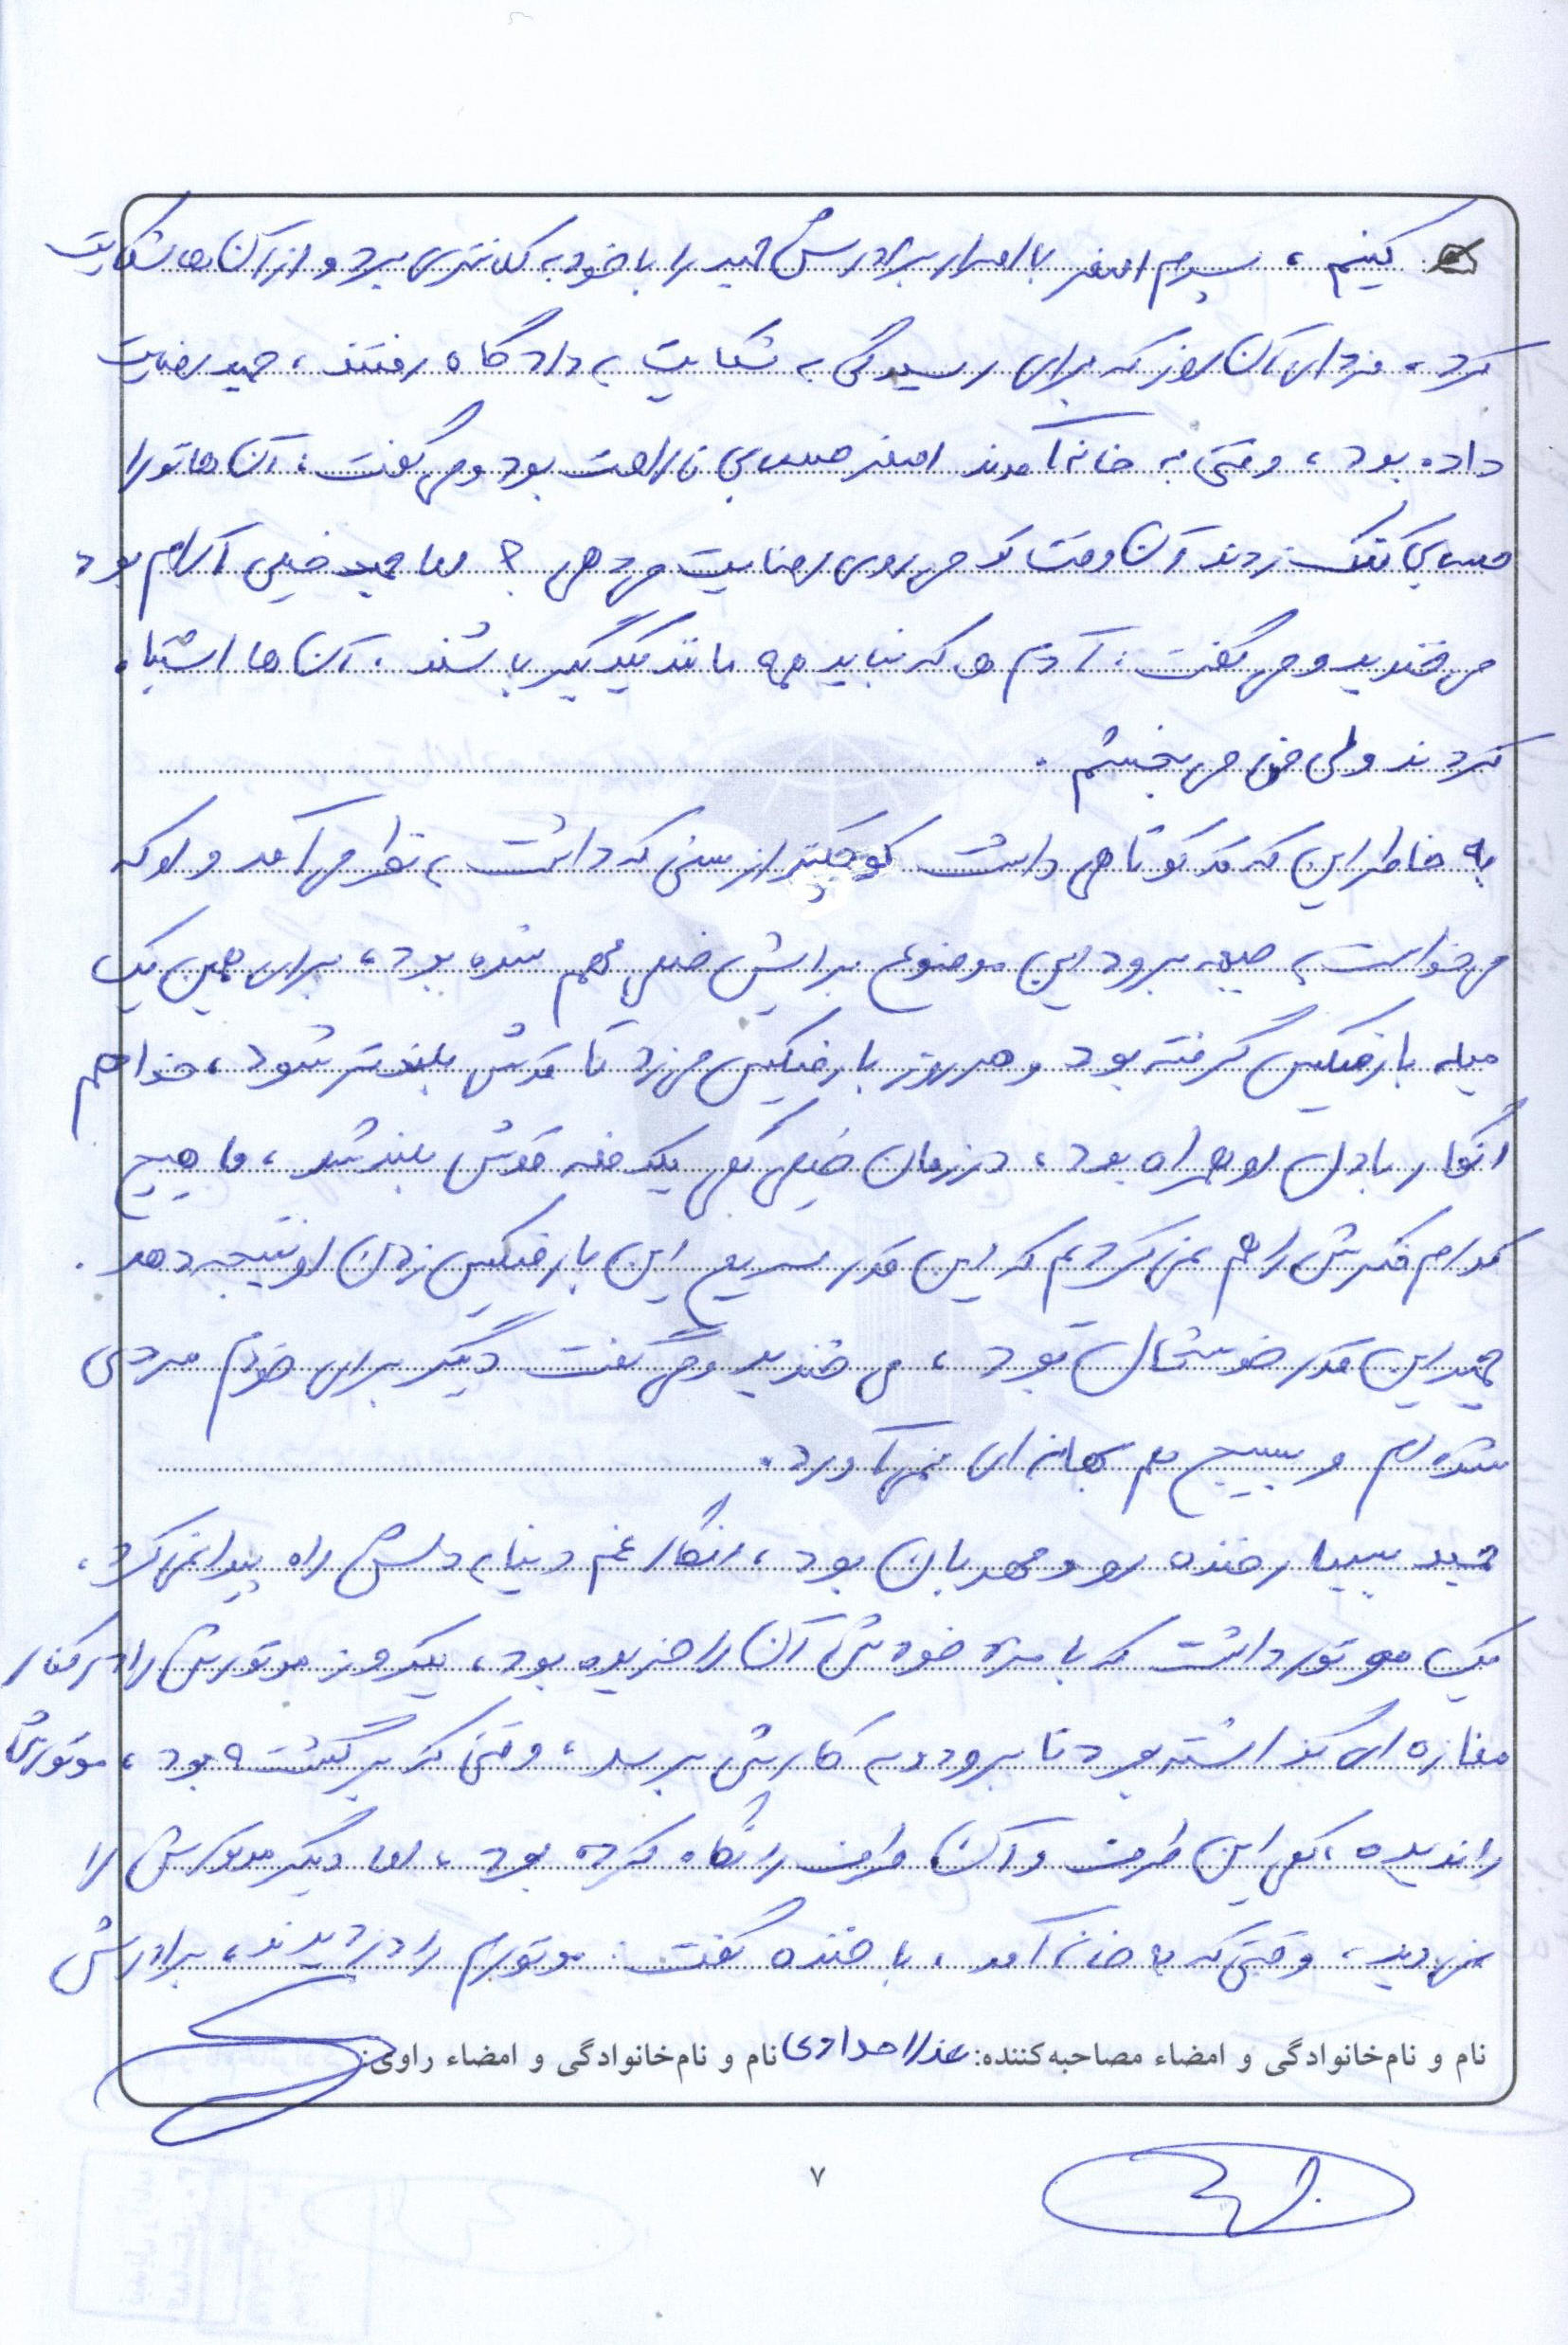 کنیم، پسرم اصغر با اصرار برادرش حمید را با خود به کلانتری برد و از آن‌ها شکایت
کرد، فردای آن روز که برای رسیدگی به شکایت به دادگاه رفتند، حمید رضایت
داده بود، وقتی به خانه آمدند اصغر حسابی ناراحت بود و می‌گفت: آن‌ها تو را
حسابی کتک زدند آن وقت تو می‌روی رضایت می‌دهی؟ اما حمید خیلی آرام بود
می‌خندید و می‌گفت: آدم‌ها که نباید همه مانند یکدیگر باشند، آن‌ها اشتباه
کردند ولی من می‌بخشم.
به خاطر این که قد کوتاهی داشت کوچکتر از سنی که داشت به نظر می‌آمد و او که
می‌خواست به جبهه برود این موضوع برایش خیلی مهم شده بود، برای همین یک
میله بارفیکس گرفته بود و هر روز بارفیکس می‌زد تا قدش بلندتر شود، خدا هم
انگار با دل او همراه بود، در زمان خیلی کمی یکدفعه قدش بلند شد، ما هیچ
کدام فکرش را هم نمی‌کردیم که این قدر سریع این بارفیکس زدن او نتیجه دهد.
حمید این قدر خوشحال بود، می‌خندید و می‌گفت دیگر برای خودم مردی
شده‌ام و بسیج هم بهانه‌ای نمی‌آورد.
حمید بسیار خنده رو و مهربان بود، انگار غم دنیا به دلش راه پیدا نمی‌کرد،
یک موتور داشت که با مزد خودش آن را خریده بود، یکروز موتورش را در کنار
مغازه‌ای گذاشته بود تا برود و به کارش برسد، وقتی که برگشته بود، موتورش
را ندیده، کمی این طرف و آن طرف را نگاه کرده بود، اما دیگر موتورش را
نمی‌دید، وقتی که به خانه آمد، با خنده گفت: موتورم را دزدیدند، برادرش
نام و نام‌خانوادگی و امضاء مصاحبه‌کننده: عذرا حدادی نام و نام‌خانوادگی و امضاء راوی:
۷